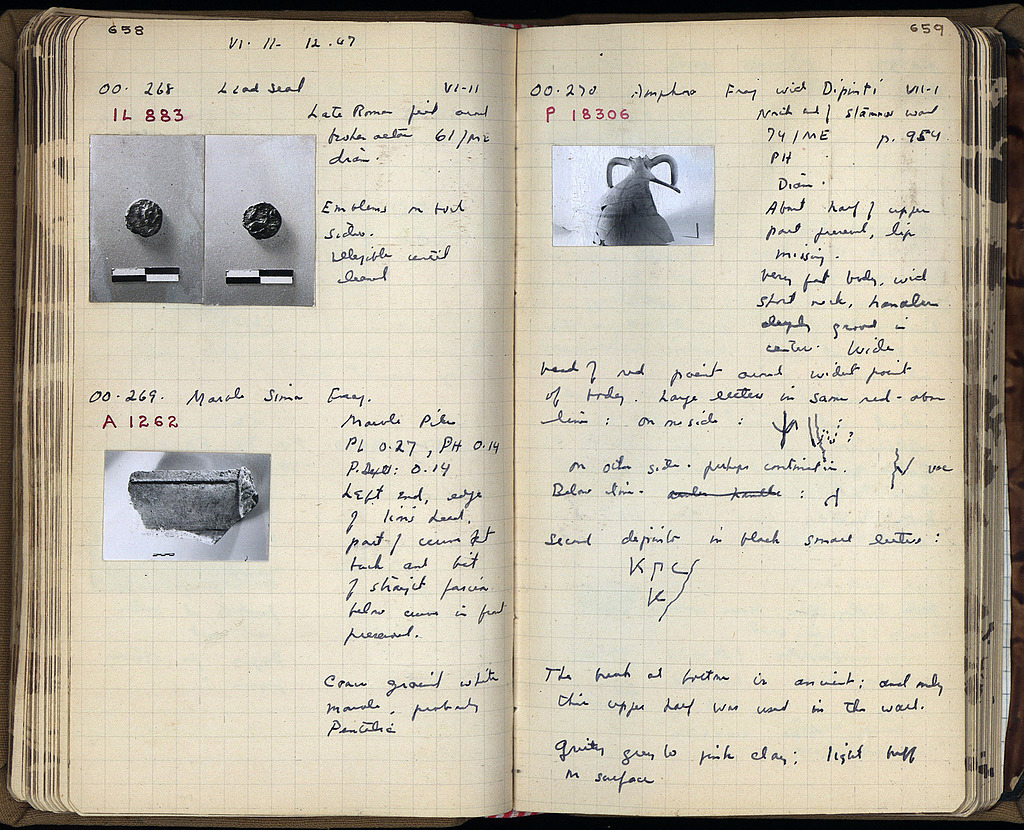 658
VI- 11- 12.47
OO. 268 Lead seal VI-11
IL 883
Late Roman fill
61/ME
drain.
Emblems on both
sides.
Illegible until
cleaned
OO.269. Marble Sima Frag.
A 1262
Marble Pile
PL 0.27, PH 0.14
P. Dept: 0.14
Left end, edge
of lion's head,
part of
back and bit
of straight fascia
below in front
preserved.
Coarse grained white
marble, probably
Pentelic
659
OO.270 Amphora Frag with Dipinti VII-1
P 18306
North end of stamnos wall
74/ME p. 954
PH
Diam.
About half of upper
part preserved, lip
missing.
Very fat body, with
short neck, handles
deeply grooved in
center. Wide
band of red paint around widest point
of body. Large letters in same red - above
line: on one side: ?
on other side - perhaps continuation. vac
Below line - under handle :
Second dipinto in black smaller letters:
Κ Π C
Κ
The break at bottom is ancient; and only
this upper half was used in the wall.
Gritty grey to pink clay; light buff
on surface